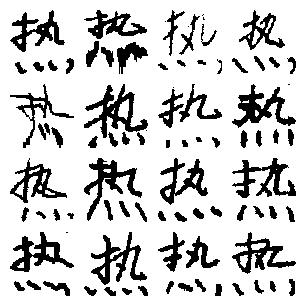 热热热热
热热热热
热热热热
热热热热